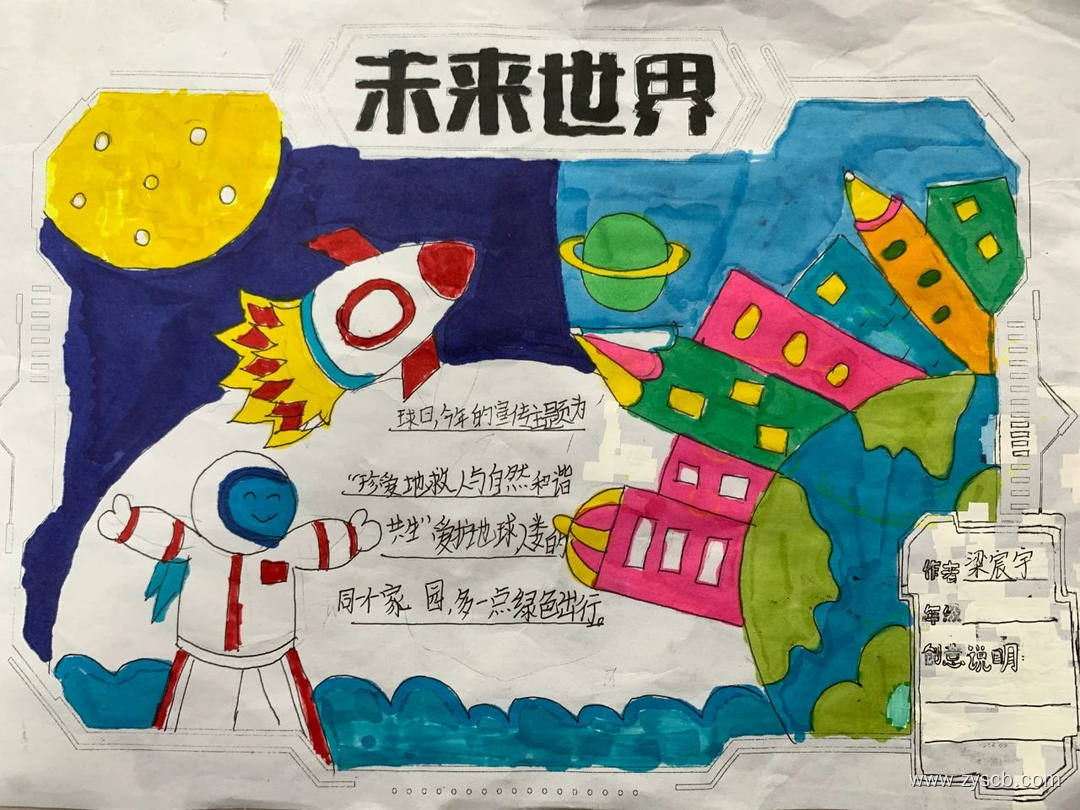 未来世界
球日,今年的宣传主题为
"珍爱地救人与自然和谐
共生"爱护地球人类的
同个家园,多一点绿色出行。
作者 梁宸宇
年级
创意说明:
www.zyscb.com